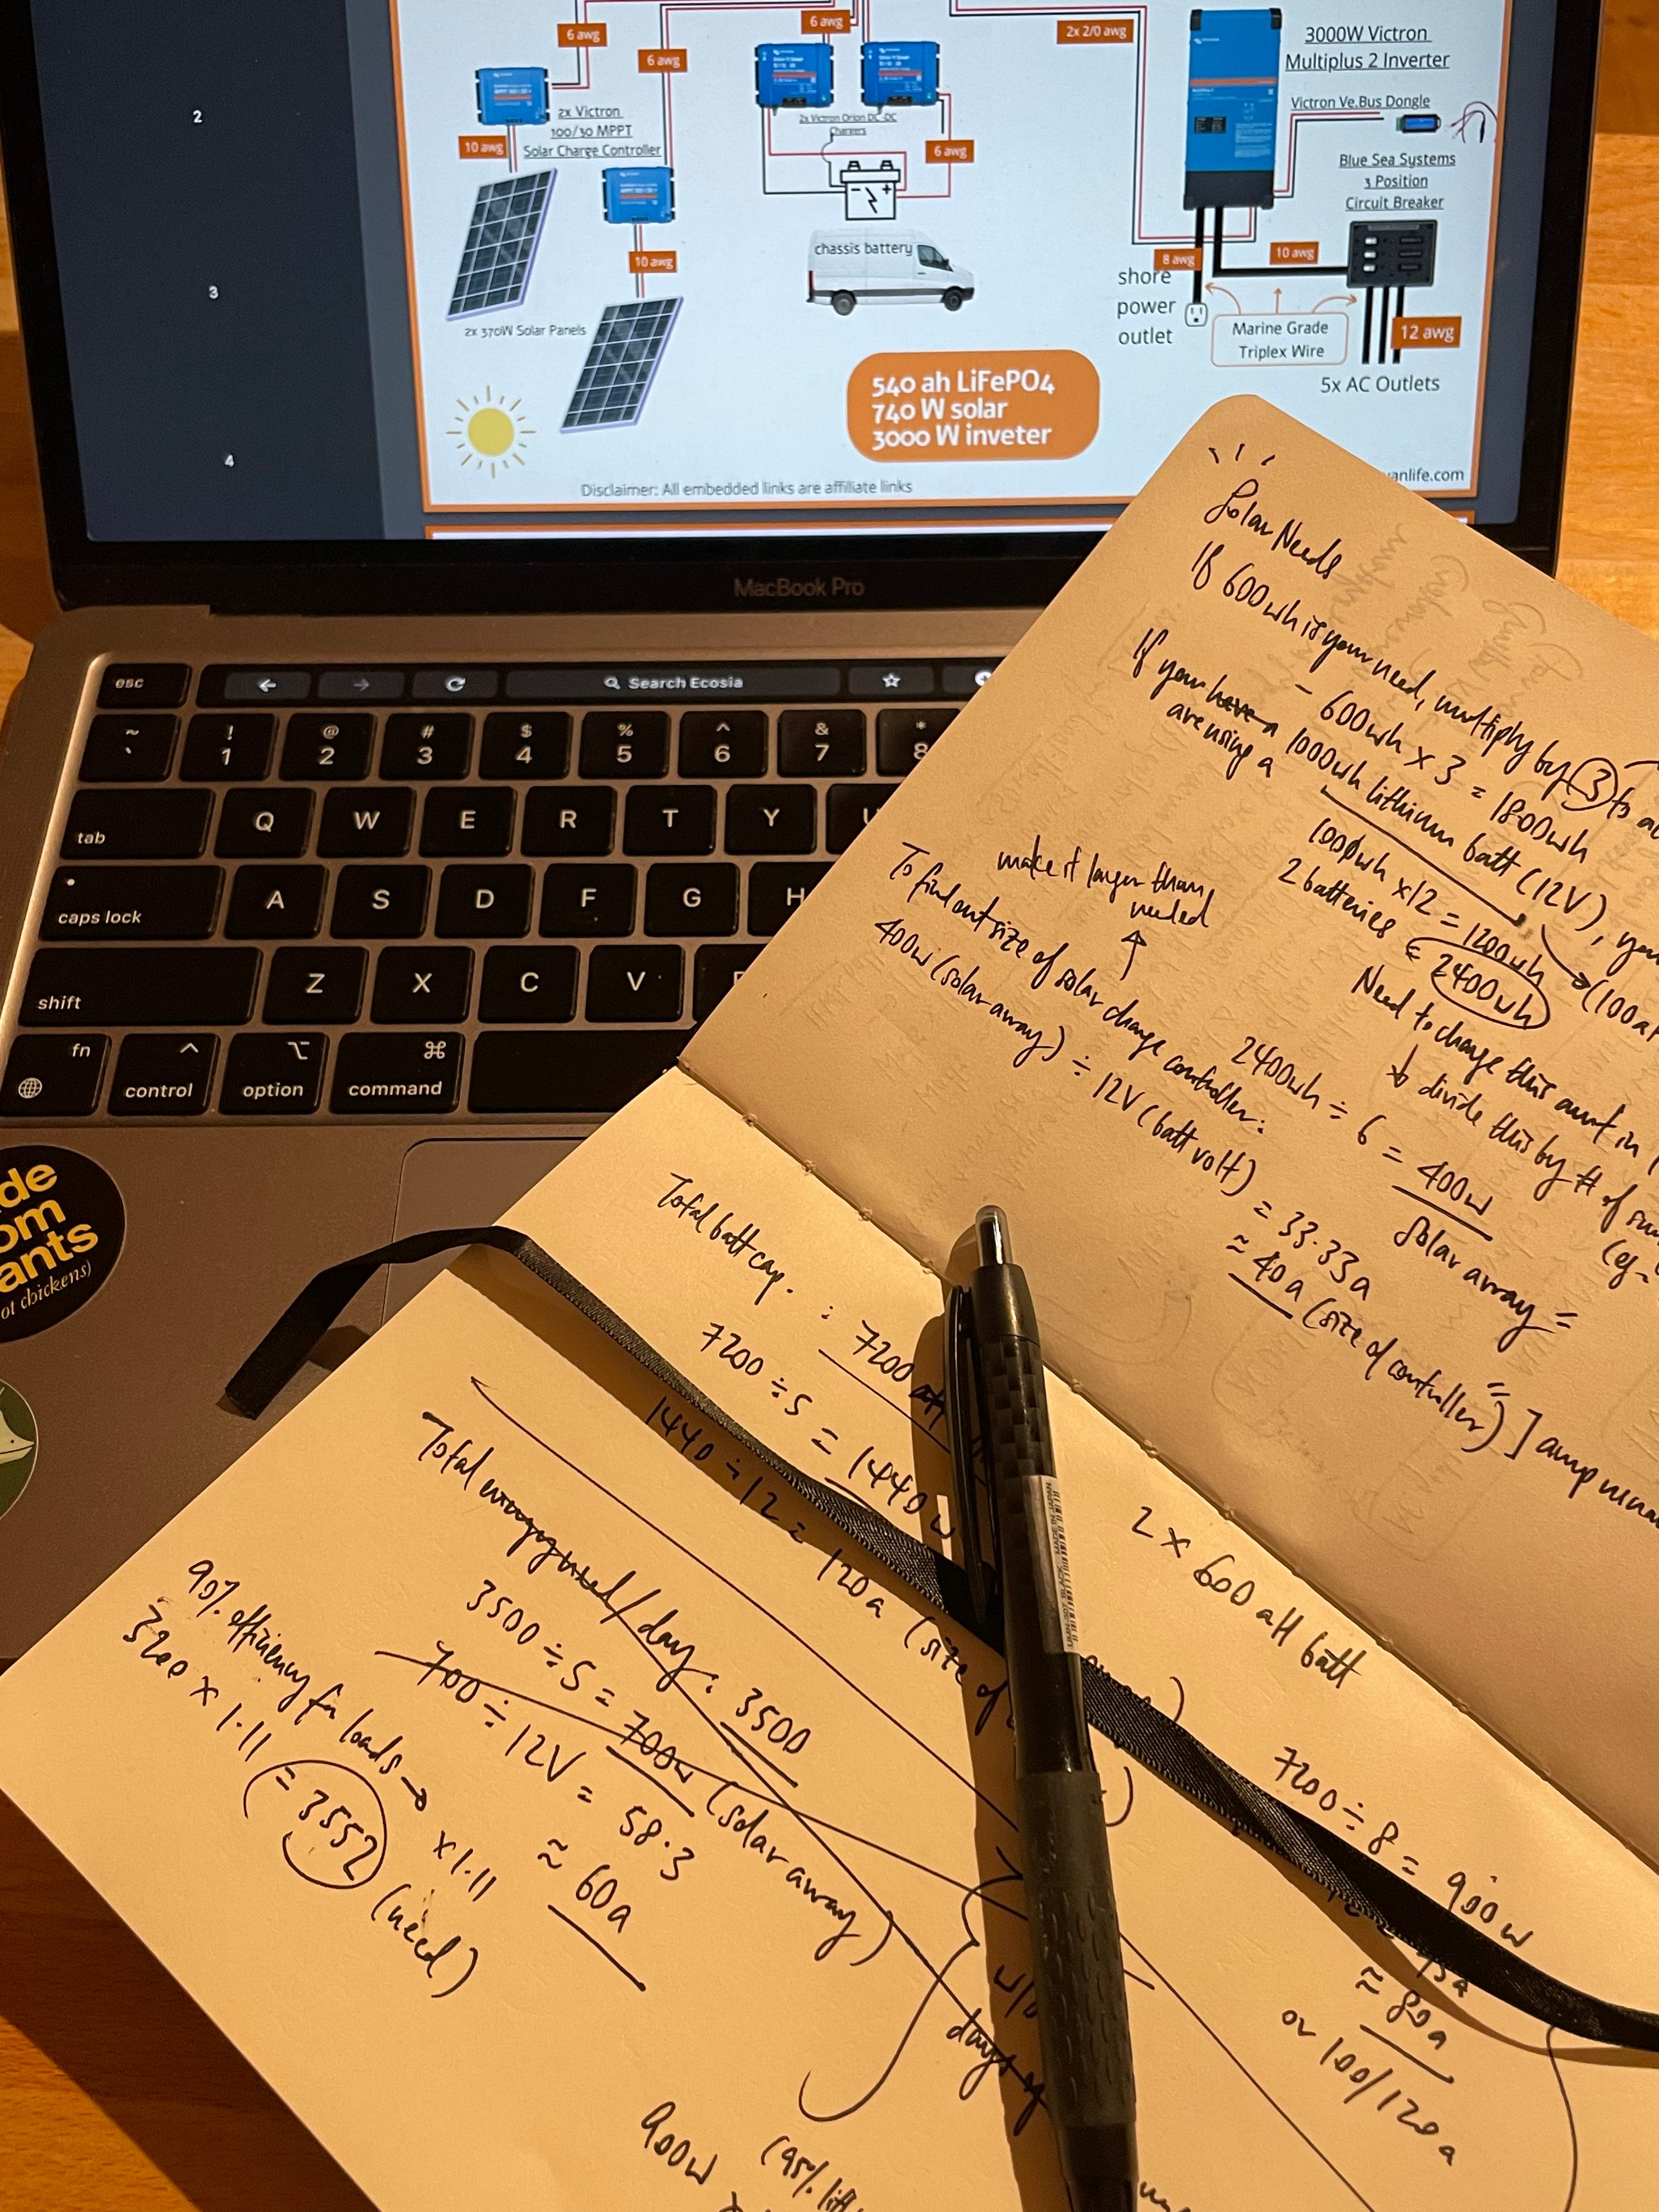 6 awg
6 awg
6 awg
2x 2/0 awg
3000W Victron
Multiplus 2 Inverter
2x Victron
100/30 MPPT
Solar Charge Controller
10 awg
2x Victron Orion DC-DC
Chargers
6 awg
Victron Ve.Bus Dongle
Blue Sea Systems
3 Position
Circuit Breaker
2
3
4
10 awg
2x 370W Solar Panels
chassis battery
8 awg
10 awg
shore
power
outlet
Marine Grade
Triplex Wire
12 awg
5x AC Outlets
540 ah LiFePO4
740 W solar
3000 W inveter
Disclaimer: All embedded links are affiliate links
anlife.com
MacBook Pro
esc
Search Ecosia
~ ` ! 1 @ 2 # 3 $ 4 % 5 ^ 6 & 7 * 8
tab Q W E R T Y U
caps lock A S D F G H
shift Z X C V
fn control option command
de
om
ants
ot chickens)
Solar Needs
If 600wh is your need, multiply by 3 to
- 600wh x 3 = 1800wh
If your have a 1000wh lithium batt (12V), you
are using a
100wh x 12 = 1200wh
2 batteries = 2400wh
(100a
Need to charge this amt in
divide this by # of
(eg.
2400wh ÷ 6 = 400w
Solar array =
make it larger than
needed
To find out size of solar charge controller:
400w (solar array) ÷ 12V (batt volt) = 33.33a
≈ 40a (size of controller) ] amp
Total batt cap. : 7200
7200 ÷ 5 = 1440w
1440 ÷ 12 = 120a (size of
2 x 600 aH batt
7200 ÷ 8 = 900w
≈ 80a
or 100/120a
Total energy used/day : 3500
3500 ÷ 5 = 700w (solar array)
700 ÷ 12V = 58.3
≈ 60a
90% efficiency for loads → x 1.11
3200 x 1.11 = 3552 (need)
w/o
days of
900w
(95%